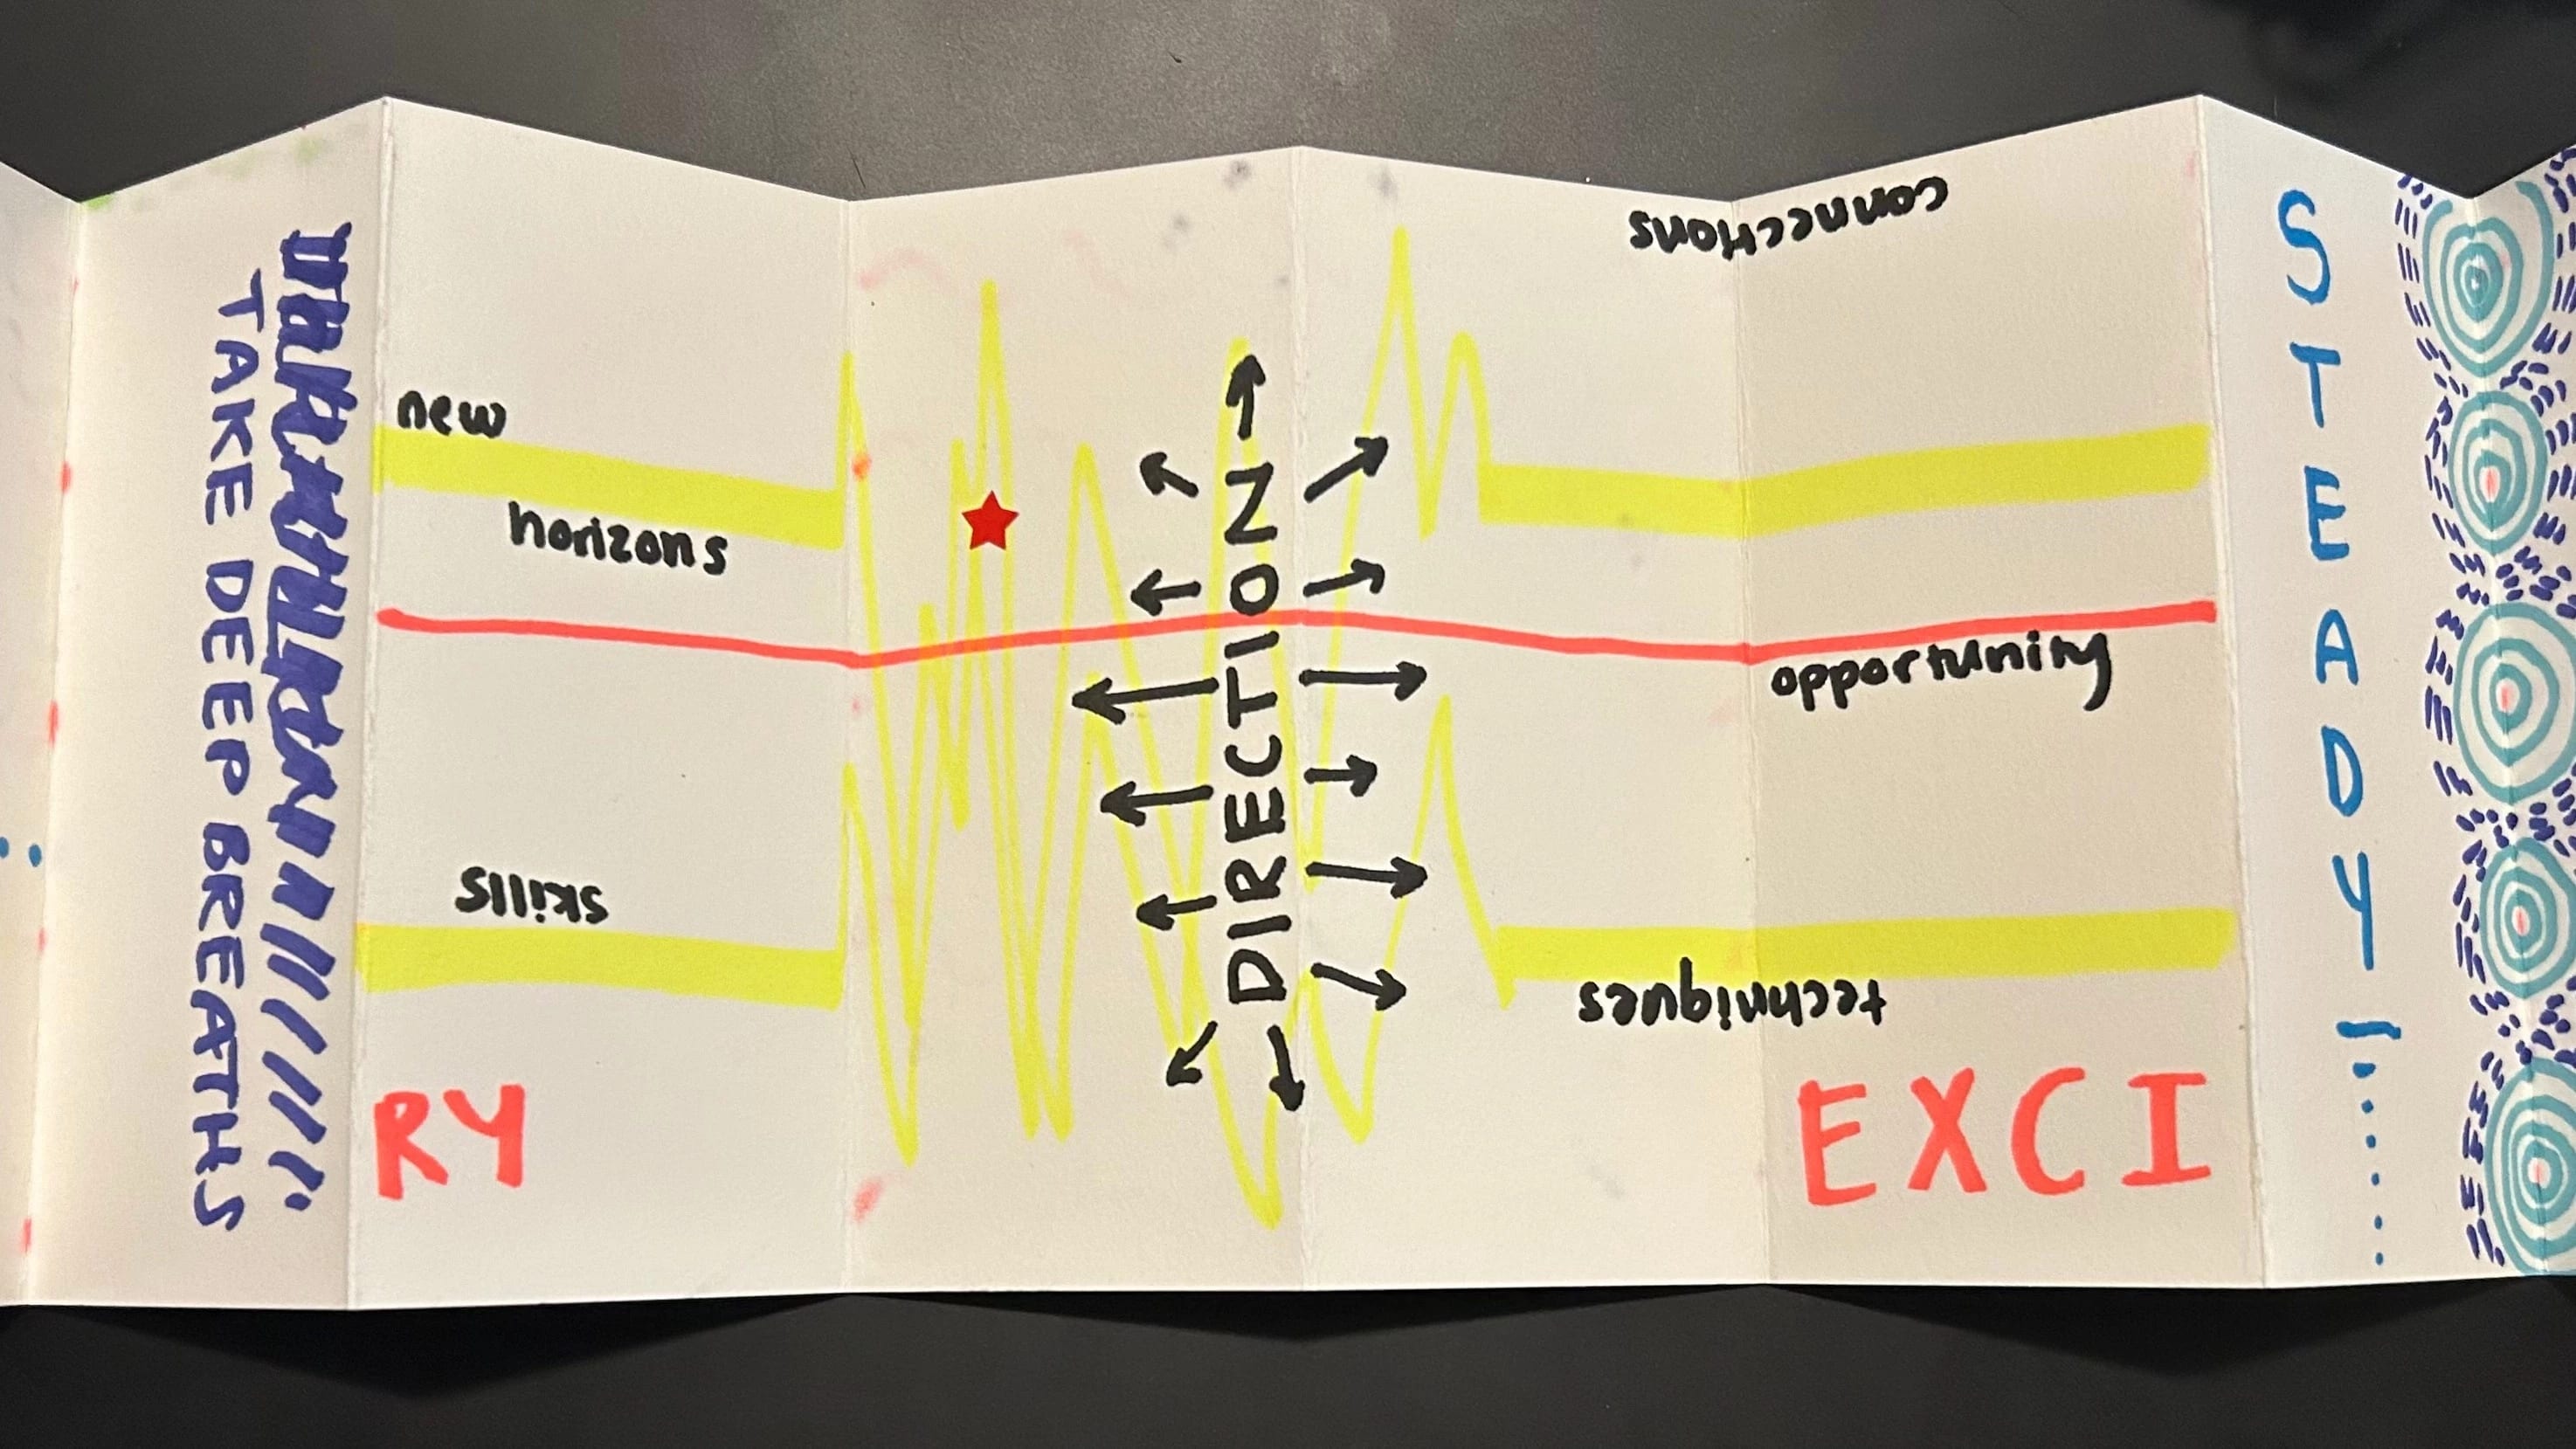 TAKE DEEP BREATHS
new
horizons
skills
RY
DIRECTION
connections
opportunity
techniques
EXCI
STEADY